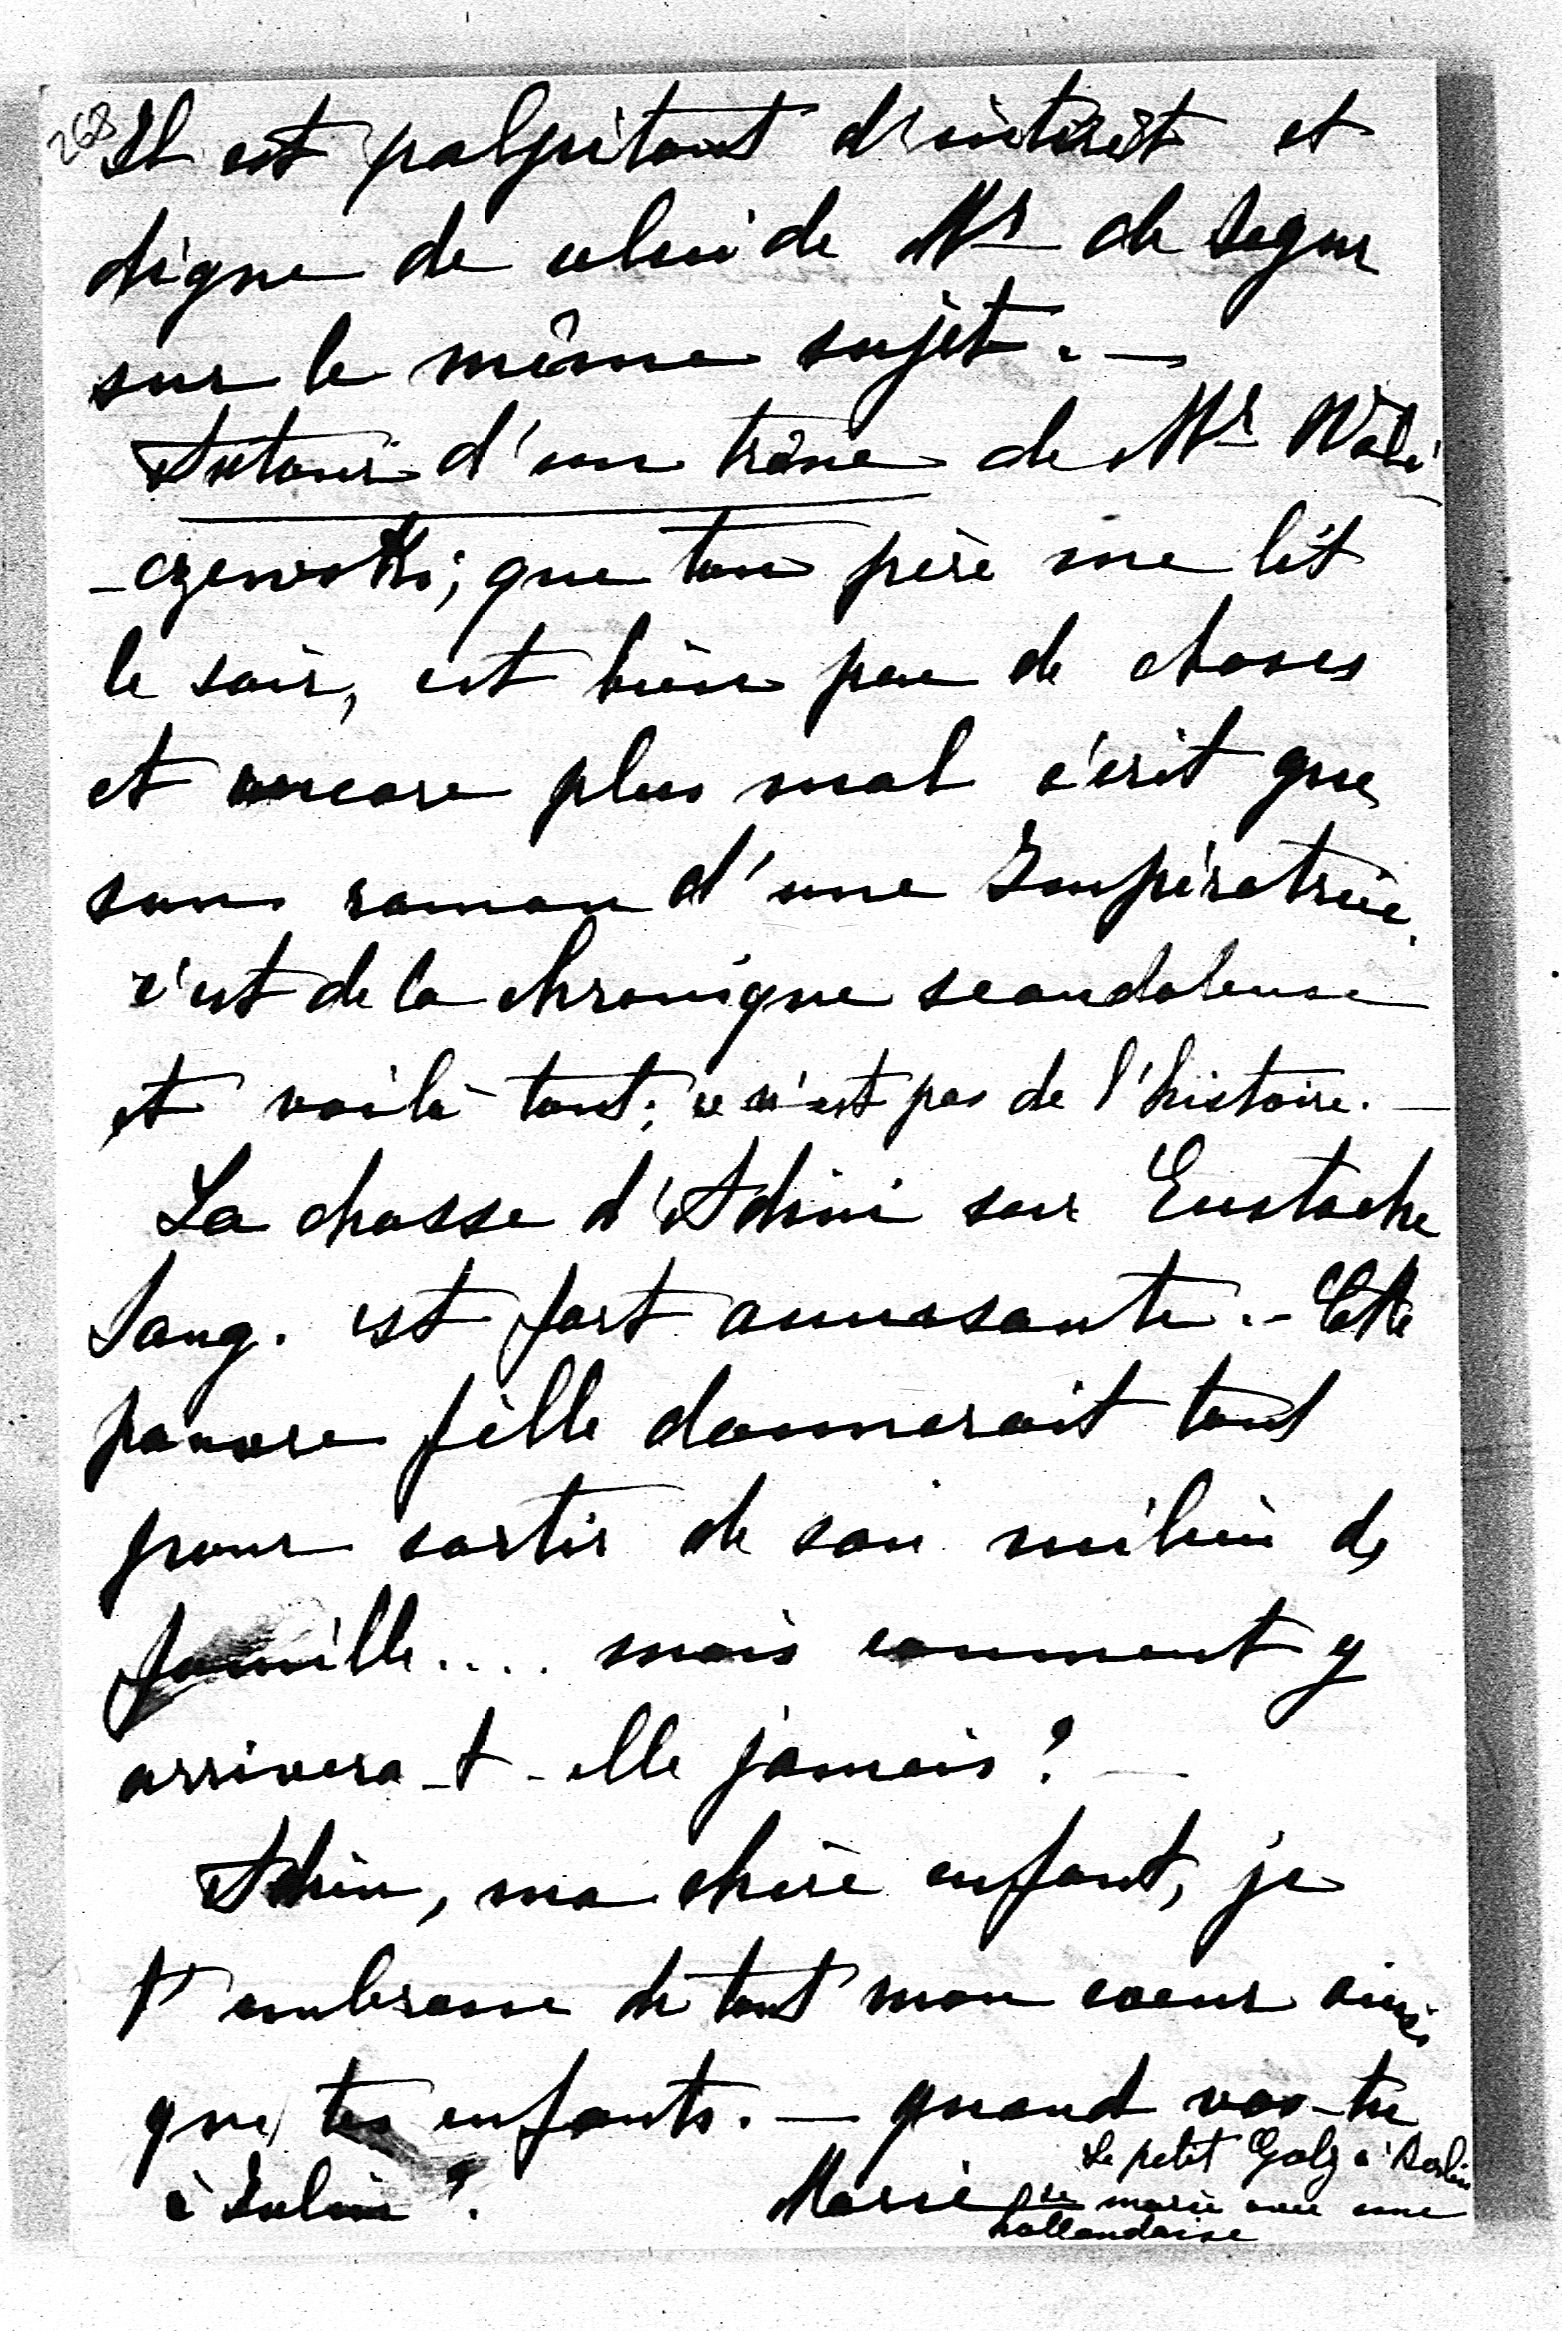 268
Il est palpitant d'intérêt et
digne de celui de Mr de Segur
sur le même sujet. —
Autour d'un trône de Mr Wali
-czewski, que ton père me lit
le soir, est bien peu de choses
et encore plus mal écrit que
son roman d'une Impératrice.
c'est de la chronique scandaleuse
et voilà tout; ce n'est pas de l'histoire. —
La chasse d'Adini sur Eustache
Sang. est fort amusante. - Cette
pauvre fille donnerait tout
pour sortir de son milieu de
famille .... mais comment y
arrivera-t-elle jamais? —
Adieu, ma chère enfant, je
t'embrasse de tout mon coeur ainsi
que tes enfants. — quand vas-tu
à ?
Marie
Le petit Golz à Berlin
se marie avec une
hollandaise